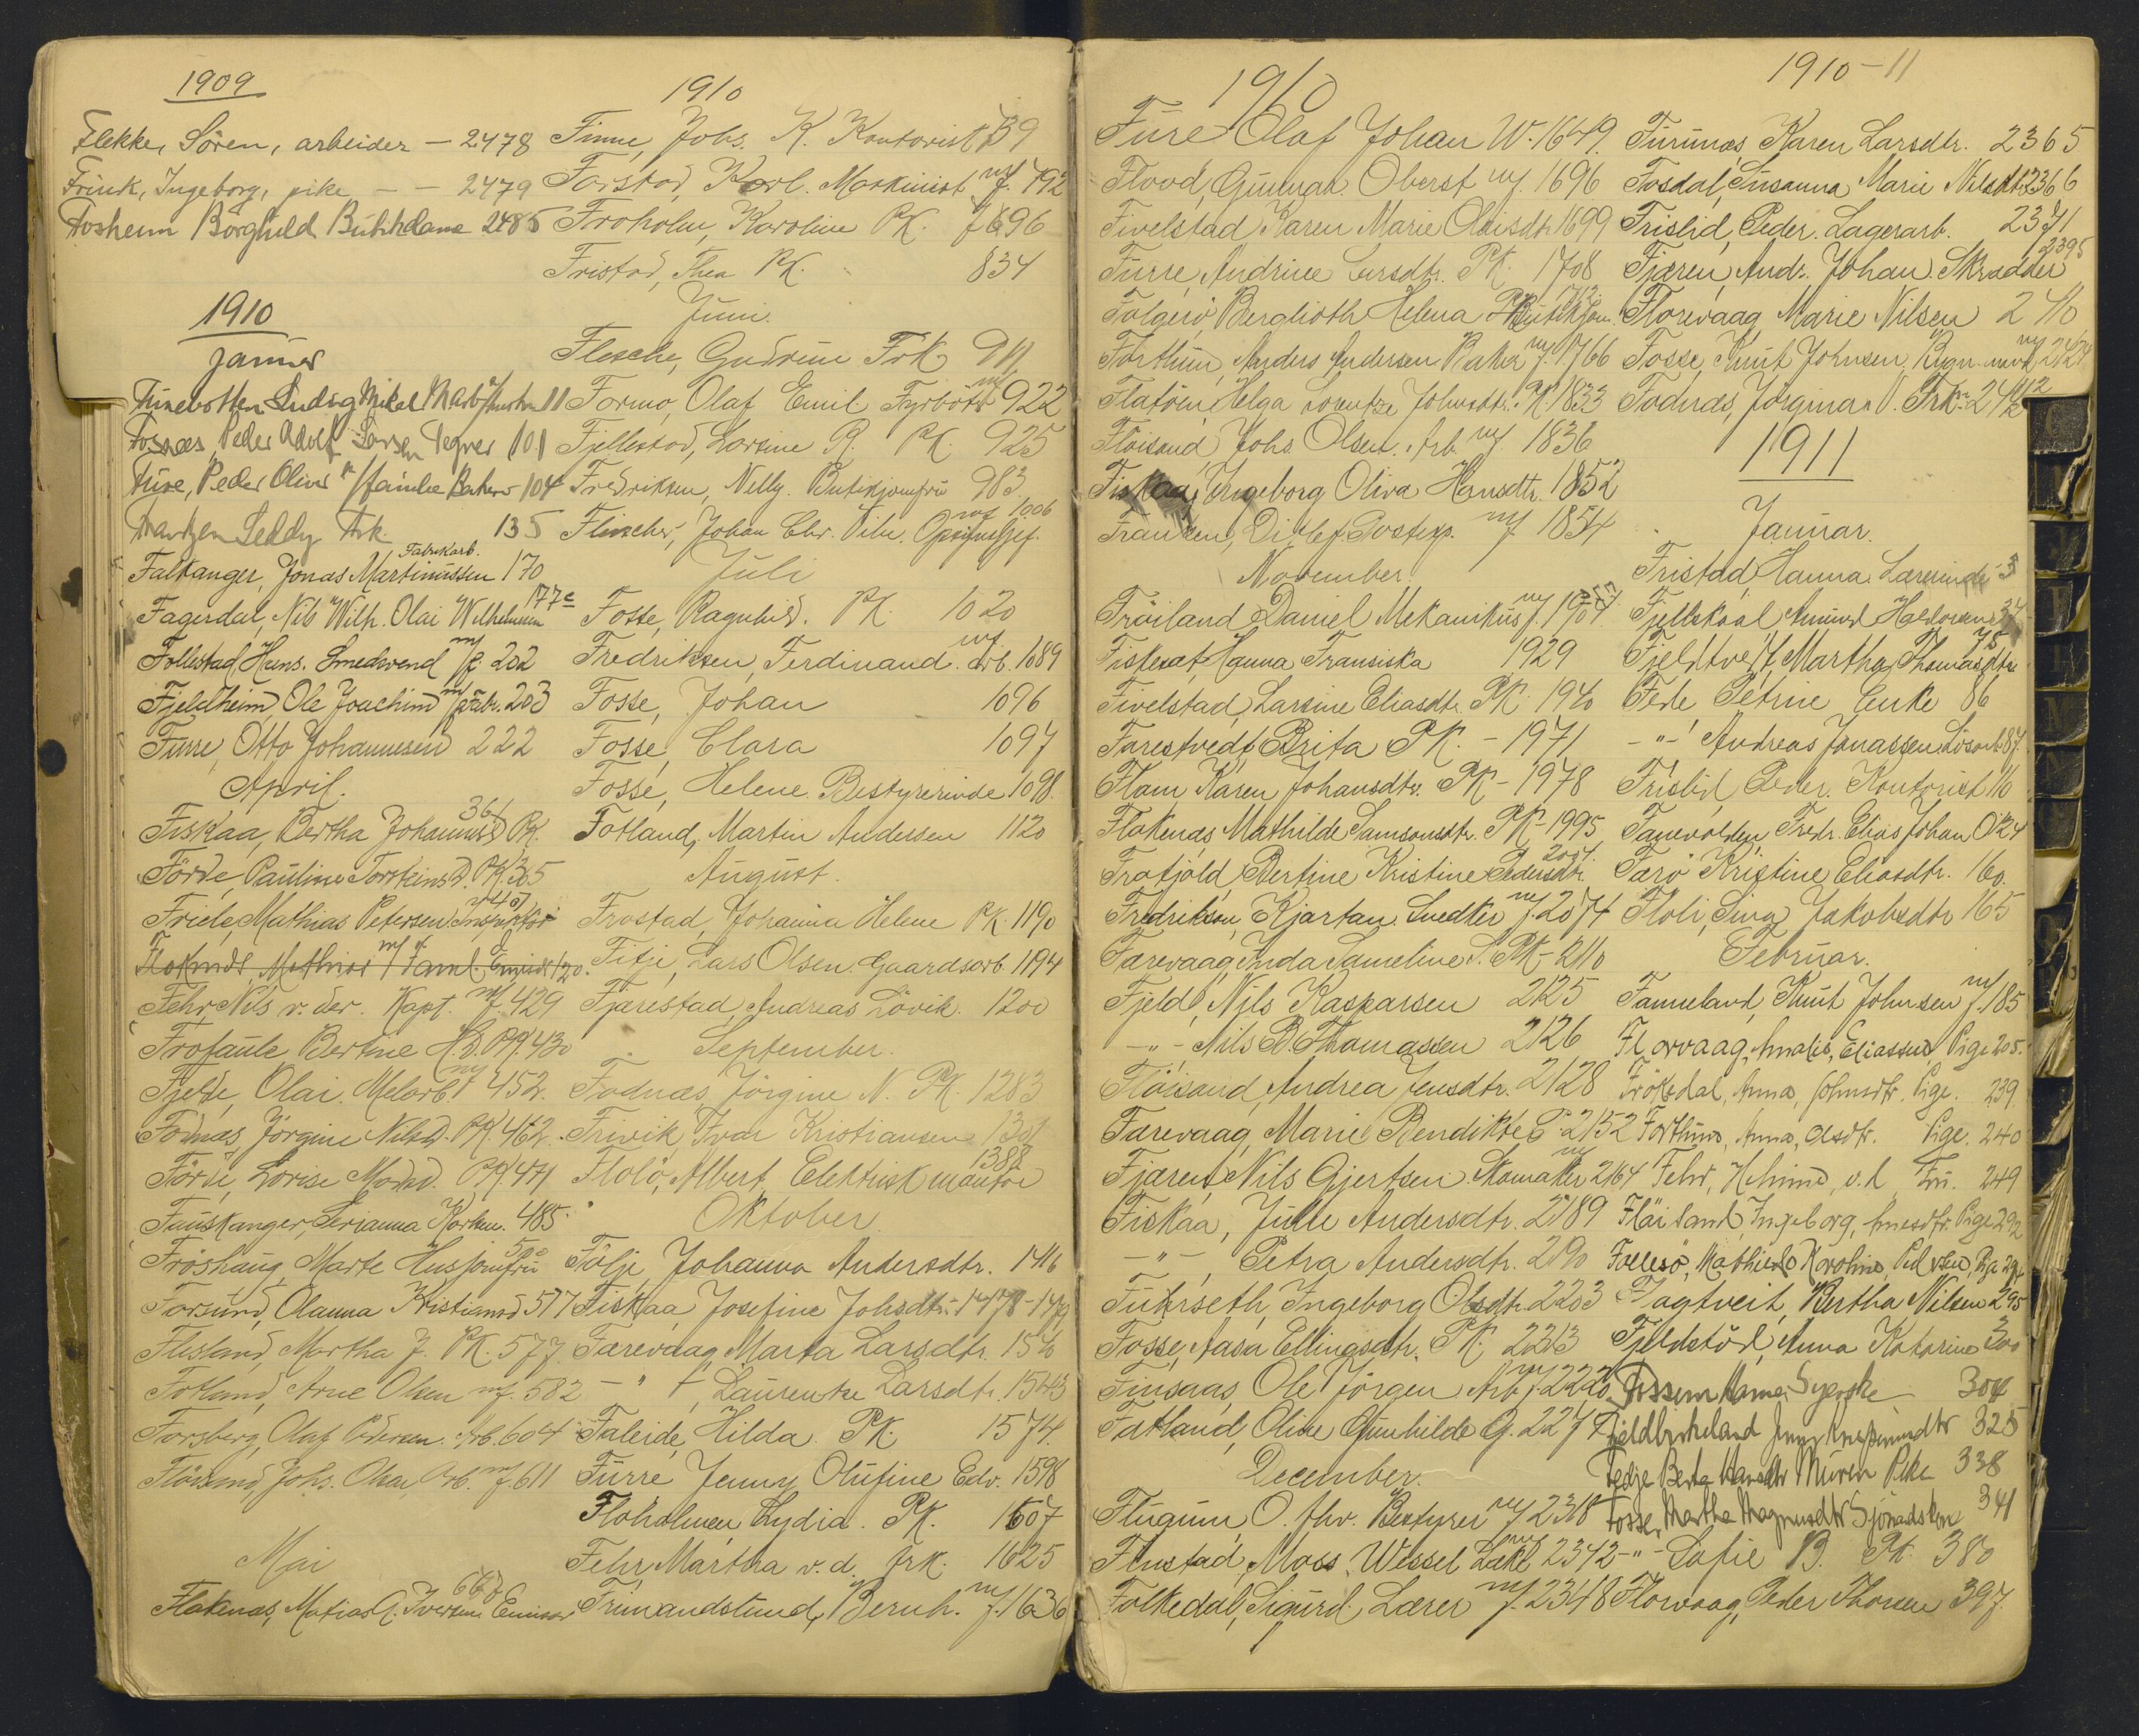 1909
Flekke, Sören, arbeider — 2478
Frink, Ingeborg, pike — — 2479
Fosheim Borghild Butikdame 2485
1910
januar
Ludvig Mikal 11
Fosnæs, Peder Adolf Tegner 101
Füre, Peder Oliver m/familie Baker 104
Frantzen Leddy Frk. 135
Falkanger, Jonas Martinussen Fabrikarb. 170
Fagerdal, Nils Wilh. Olai Wilhelmsen 177
Follestad Hans. Smedsvend m/f. 202
Fjeldheim, Ole Joachim m/f arb. 203
Furre, Otto Johannesen 222
April.
Fiskaa, Bertha Johannesd. PK. 361
Förde, Pauline Torsteinsd. PK. 365
Friele, Mathias Petersen Inspektör 407
Flokenæs, Mathias m/Faml. Emissær 420.
Fehr, Nils v. der. Kapt. m/f. 429
Frotaule Bertine H.D. PK. 430
Fjelde, Olai. Melarb. m/f 452.
Fodnæs, Jörgine Nilsd. PK. 462.
Förde, Lovise Madsd. PK 471
Fauskanger, Serianna Karten. 485
Fröshaug, Marte Husjomfru 500
Forsund, Olanna Kristiansd 517
Flesland, Martha J. PK. 577.
Fotland, Arne Olsen m/f. 582
Forsberg, Olaf Pedersen. Arb. 604
Flöisand, Johs. Olsen, Arb. m/f. 611
Mai
Flakenæs, Matias A. Iversen. Emissær 662
1910
Finne, Johs. K. Kontorist 739
Farstad, Karl. Maskinist m/f. 792
Froholm, Karoline PK. 896
Fristad, Thea PK. 834
Juni.
Flesche, Gudrun Frk 911
Formo, Olaf Emil Fyrböter m/f 922
Fjellestad, Lorsine R. PK. 925
Fredriksen, Nelly. Butikjomfru 983.
Fleischer, Johan Chr. Vilh. Opsynsbetj. m/f 1006
Juli
Fosse, Ragnhild. PK. 1020
Fredriksen, Ferdinand. Arb. m/f 1089
Fosse, Johan 1096
Fosse, Clara 1097
Fosse, Helene. Bestyrerinde 1098.
Fotland, Martin Andersen 1120
August.
Frostad, Johanna Helene PK. 1190
Fitje, Lars Olsen. Gaardsarb. 1194
Fjærestad, Andreas Lövik. 1200
September.
Fodnæs, Jörgine N. PK. 1283
Frivik, Ivar Kristiansen 1301
Flolö, Albert, Elektrisk montör 1388
Oktober.
Följe, Johanna Andersdtr. 1416
Fiskaa, Josefine Johsdtr. 1478-1479
Færevaag, Marta Larsdtr. 1540
— " —, Laurentse Larsdtr. 1543
Faleide, Hilda. PK. 1574.
Furre Jenny Olufine Edv. 1598
Floholmen Lydia. PK. 1607
Fehr, Martha v. d. frk. 1625
Frimandslund, Bernh. m/f. 1636
1910
Füre Olaf Johan W. 1649.
Flood, Gunnar Oberst m/f. 1696
Fivelstad Karen Marie Olaisdtr. 1699
Furre, Andrine Larsdtr. PK. 1708
Folgerö Berglioth Helena Butikjom. 1712
Forthun, Anders Andersen Baker m/f. 1766
Flatöen, Helga Lorentze Johnsdtr. PK 1833
Flöisand, Johs. Olsen. Arb. m/f. 1836
Fiskaa, Ingeborg Oliva Hansdtr. 1852
Frantzen, Ditlef. Postexp. m/f. 1854
November.
Fröiland Daniel Mekanikus m/f. 1904
Fisketat, Hanna Fransiska 1929
Fivelstad, Larsine Eliasdtr. PK. 1940
Farestvedt, Brita PK. — 1971
Flam, Karen Johansdtr. PK — 1978
Flokenæs, Mathilde Samsonsdtr. PK — 1995
Frafjold, Bertine Kristine Pedersdtr. 2007.
Fredriksen, Kjartan. Snedker m/f. 2074
Færevaag, Inda Sameline S. PK — 2110
Fjeld, Nils Kasparsen 2125
— " — Nils B. Thomassen 2126
Flöisand, Andrea Jensdtr. 2128
Færevaag, Marie Bendikte P. 2152
Fjæren, Nils Gjertsen. Skomaker m/f 2164
Fiskaa, Julie Andersdtr. 2189
— " —, Petra Andersdtr. 2190
Fuhrseth, Ingeborg Olsdtr. 2203
Fosse, Aasa Ellingsdtr. PK. 2213
Finsaas, Ole Jörgen Arb. m/f. 2220
Fatland, Oline Gunhilde G. 2274
December.
Flugum, O. Thv. Bestyrer m/f 2318
Finstad, Moss. Wessel Læk. m/f 2342
Folkedal, Sigurd. Lærer m/f. 2348
1910-11
Furunæs, Karen Larsdtr. 2365
Fosdal, Susanna Marie Nilsdtr. 2366
Frislid, Peder. Lagerarb. 2371
Fjæren, Andr. Johan. Skrædder 2395
Florvaag, Marie Nilsen 2410
Fosse, Knut Johnsen. m/f 2424
Fodnæs, Jörgina N. Frk. 2442
1911
Januar.
Fristad, Hanna. Lærerinde 3
Fjellskaal Amund Haldorsen 34
Fjeldtvedt, Martha Thomasdtr. 75
Fede Petrine Enke 86
— " — Andreas Jonassen. Lösarb. 87.
Frislid Peder. Kontorist 116
Fanevolden, Fredr. Elias Johan O. 124
Farö Kristine Eliasdtr. 160.
Floli, Sina Jakobsdtr. 165
Februar.
Fanneland, Knut Johnsen m/f. 185
Florvaag, Amalie, Eliassen, Pige 205.
Frökedal, Anna, Johnsdtr. Pige. 239.
Forthun, Anna, Olsdtr. Pige. 240
Fehr, v. d. Fru. 249
Flöisand, Ingeborg, Pige 292
Follesö, Mathilde Karoline, Pedersen, Pige 294
Fagtveit, Bertha Nilsen 295
Fjeldstöl, Anna Katarina 300
Fossum Hanna Syerske 304
Fjeldbirkeland Jenny 325
Fedje Berta Hansdtr Muren Pike 338
Fosse, Martha Magnusdtr Sjömandskone 341
— " — Sofie B. PK. 380
Florvaag, Peder Thorsen 397.